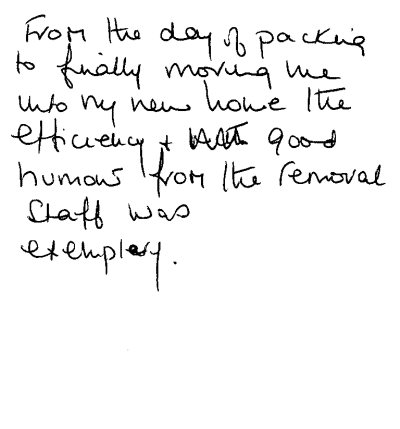 From the day of packing
to finally moving me
into my new home the
efficiency + good
humour from the removal
staff was
exemplary.